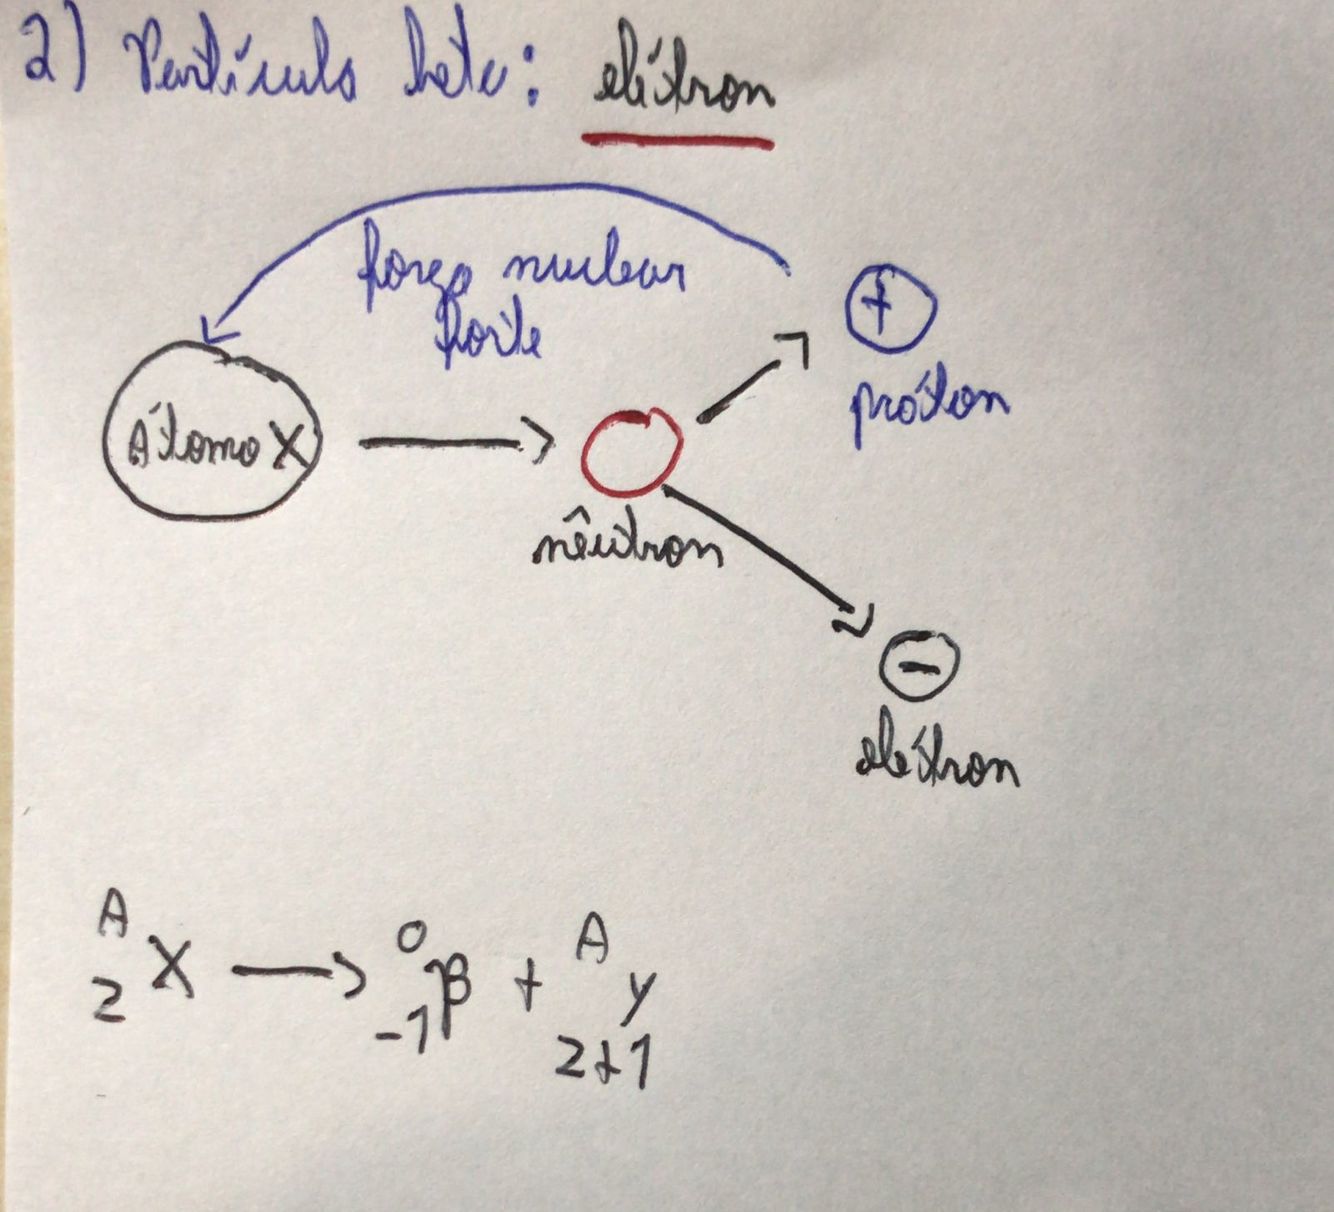 2) Partícula beta: elétron
força nuclear
forte
+
próton
Átomo X
nêutron
-
elétron
A 0 A
X → β + y
Z -1 Z+1